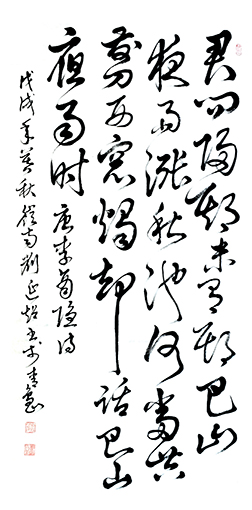 君问归期未有期巴山
夜雨涨秋池何当共
剪西窗烛却话巴山
夜雨时 唐李商隐诗
戊戌年 秋岭南刘延 书于青